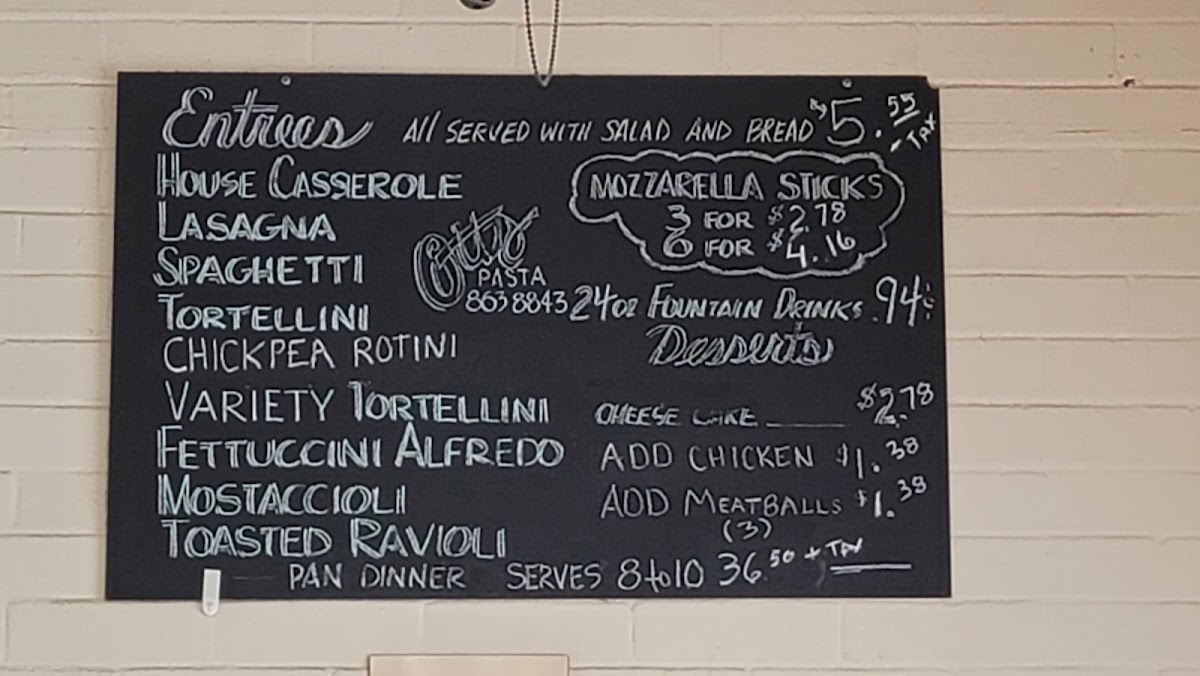 Entrees All SERVED WITH SALAD AND BREAD $5.55 + TAX
HOUSE CASSEROLE
LASAGNA
SPAGHETTI
TORTELLINI
CHICKPEA ROTINI
VARIETY TORTELLINI
FETTUCCINI ALFREDO
MOSTACCIOLI
TOASTED RAVIOLI
PASTA
863 8843
MOZZARELLA STICKS
3 FOR $2.78
6 FOR $4.16
24oz FOUNTAIN DRINKS .94¢
Desserts
CHEESE CAKE $2.78
ADD CHICKEN $1.38
ADD MEATBALLS $1.38
(3)
PAN DINNER SERVES 8 to 10 36.50 + TAX